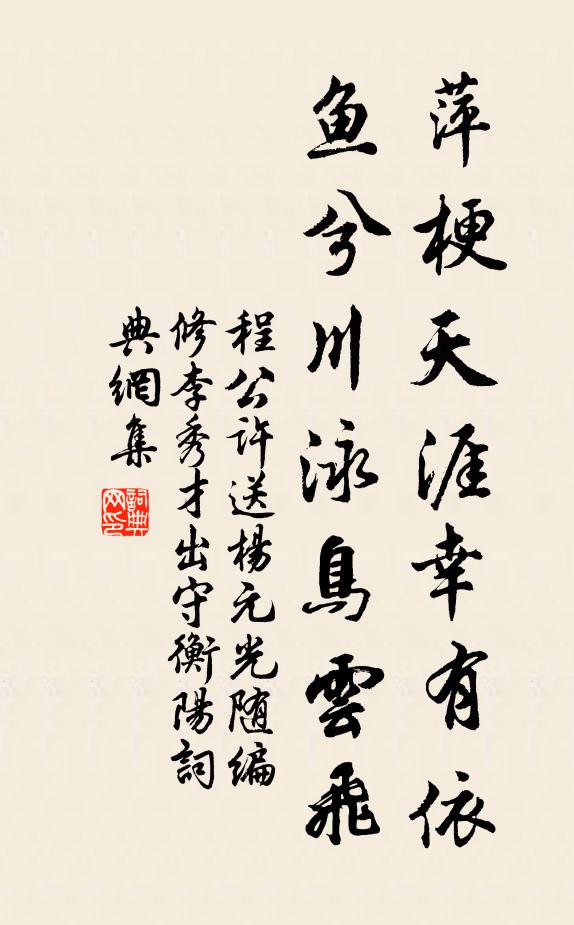 萍梗天涯幸有依
鱼兮川泳鳥雲飛
程公许送楊元光随编
修李秀才出守衡陽詞
典網集
詞典网印